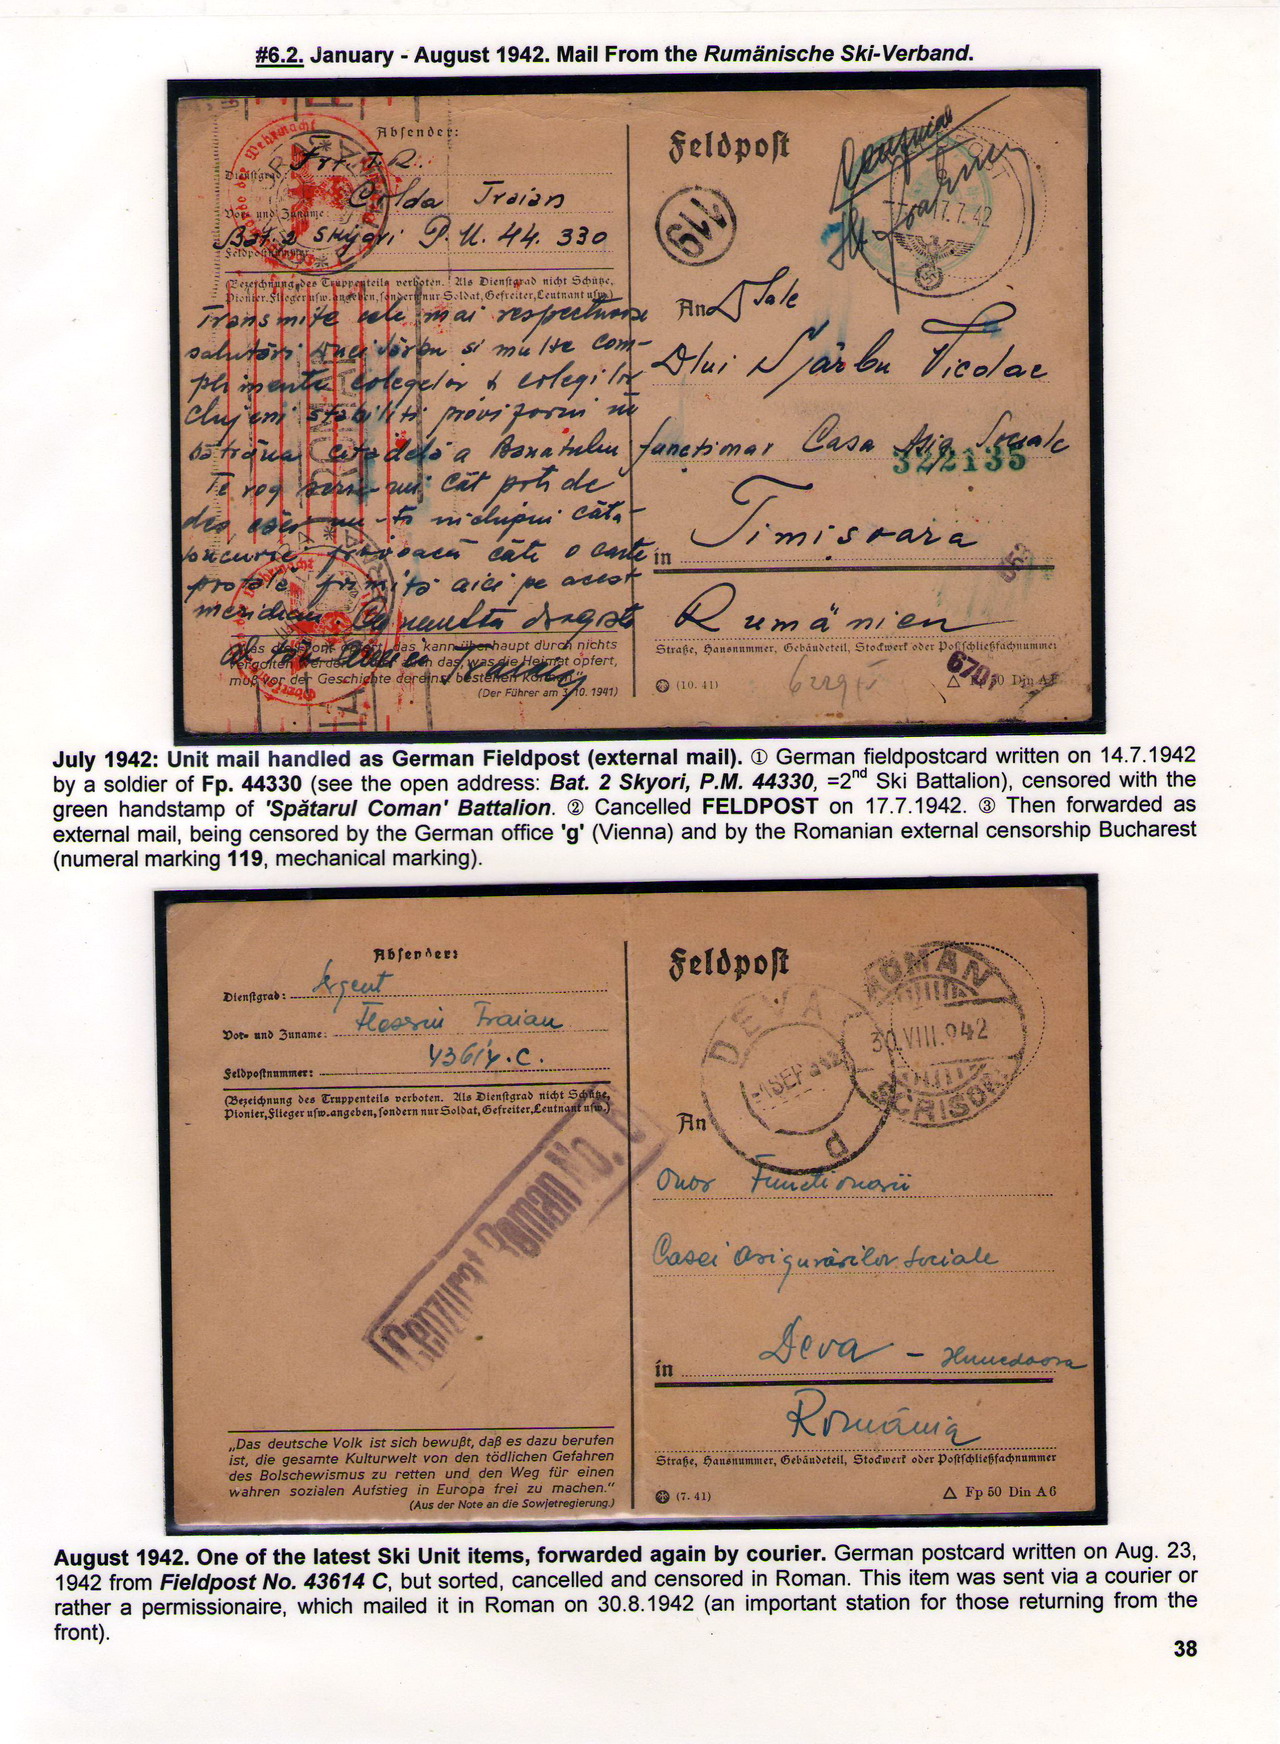 #6.2. January - August 1942. Mail From the Rumänische Ski-Verband.
Absender:
Dienstgrad:
Vor- und Zuname: Traian
Bat. 2 Skyori P.M. 44. 330
Feldpostnummer
(Bezeichnung des Truppenteils verboten. Als Dienstgrad nicht Schütze,
Pionier, Flieger usw. angeben, sondern nur Soldat, Gefreiter, Leutnant usw.)
Transmite cele mai respectuoase
salutări si multe com-
plimente colegelor
clujeni stabiliti provizoriu în
bătrâna citadelă a Banatului
Te rog cât poti de
des
o carte
postală primită aici pe acest
meridian.
„Was die Front opfert, das kann überhaupt durch nichts
vergolten werden. Aber auch das, was die Heimat opfert,
muß vor der Geschichte dereinst bestehen können.“
(Der Führer am 3.10.1941)
Feldpost
119
17.7.42
An
Dlui Sârbu Nicolae
functionar Casa Asig. Sociale
322135
Timisoara
in
Rumänien
Straße, Hausnummer, Gebäudeteil, Stockwerk oder Postschließfachnummer
6701
(10. 41)
Fp 50 Din A6
July 1942: Unit mail handled as German Fieldpost (external mail). ① German fieldpostcard written on 14.7.1942
by a soldier of Fp. 44330 (see the open address: Bat. 2 Skyori, P.M. 44330, =2nd Ski Battalion), censored with the
green handstamp of 'Spătarul Coman' Battalion. ② Cancelled FELDPOST on 17.7.1942. ③ Then forwarded as
external mail, being censored by the German office 'g' (Vienna) and by the Romanian external censorship Bucharest
(numeral marking 119, mechanical marking).
Absender:
Dienstgrad:
Vor- und Zuname: Traian
43614.C.
Feldpostnummer:
(Bezeichnung des Truppenteils verboten. Als Dienstgrad nicht Schütze,
Pionier, Flieger usw. angeben, sondern nur Soldat, Gefreiter, Leutnant usw.)
Cenzurat Roman No.
„Das deutsche Volk ist sich bewußt, daß es dazu berufen
ist, die gesamte Kulturwelt von den tödlichen Gefahren
des Bolschewismus zu retten und den Weg für einen
wahren sozialen Aufstieg in Europa frei zu machen.“
(Aus der Note an die Sowjetregierung.)
Feldpost
DEVA
1 SEP 942
ROMAN
30.VIII.942
SCRISORI
An
Onor Functionarii
Casei Asigurărilor Sociale
in Deva - Hunedoara
România
Straße, Hausnummer, Gebäudeteil, Stockwerk oder Postschließfachnummer
(7. 41)
Fp 50 Din A6
August 1942. One of the latest Ski Unit items, forwarded again by courier. German postcard written on Aug. 23,
1942 from Fieldpost No. 43614 C, but sorted, cancelled and censored in Roman. This item was sent via a courier or
rather a permissionaire, which mailed it in Roman on 30.8.1942 (an important station for those returning from the
front).
38